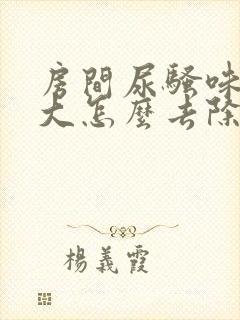 房間尿騷味
大怎麼去除
楊義霞